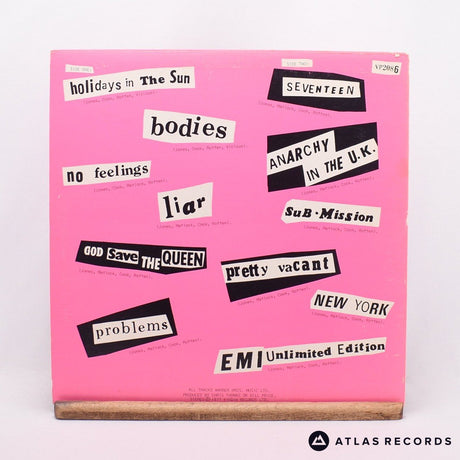 SIDE ONE:
holidays in The Sun
(Jones, Cook, Rotten, Vicious).
bodies
(Jones, Cook, Rotten, Vicious).
no feelings
(Jones, Matlock, Cook, Rotten).
liar
(Jones, Matlock, Cook, Rotten).
GOD Save THE QUEEN
(Jones, Matlock, Cook, Rotten).
problems
(Jones, Matlock, Cook, Rotten).
SIDE TWO:
VP2086
SEVENTEEN
(Jones, Matlock, Cook, Rotten).
ANARCHY
IN THE U.K.
(Jones, Matlock, Cook, Rotten).
SuB·Mission
(Jones, Matlock, Cook, Rotten).
pretty vacant
(Jones, Matlock, Cook, Rotten).
NEW YORK
(Jones, Matlock, Cook, Rotten).
EMI Unlimited Edition
(Jones, Matlock, Cook, Rotten).
ALL TRACKS WARNER BROS. MUSIC LTD.
PRODUCED BY CHRIS THOMAS OR BILL PRICE.
ATLAS RECORDS